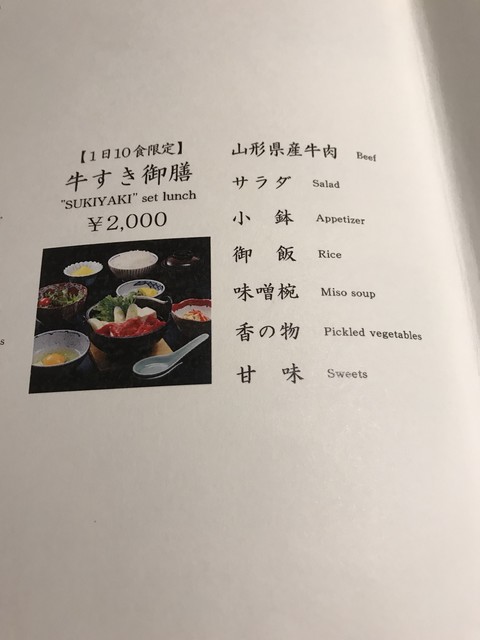 【1日10食限定】
牛すき御膳
"SUKIYAKI" set lunch
¥2,000
山形県産牛肉 Beef
サラダ Salad
小鉢 Appetizer
御飯 Rice
味噌椀 Miso soup
香の物 Pickled vegetables
甘味 Sweets